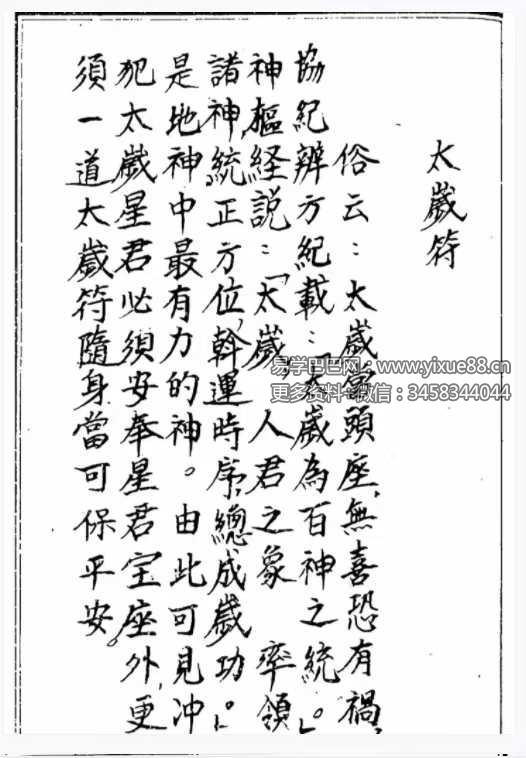 太歲符
俗云：太歲當頭座，無喜恐有禍，
協紀辨方紀載：「太歲為百神之統。」
神樞経説：「太歲，人君之象 率領
諸神，統正方位，斡運時序，總成歲功。」
是地神中最有力的神。由此可見冲
犯太歲星君必須安奉星君宝座外，更
須一道太歲符隨身當可保平安。
易学巴巴网：www.yixue88.cn
更多资料+微信：3458344044